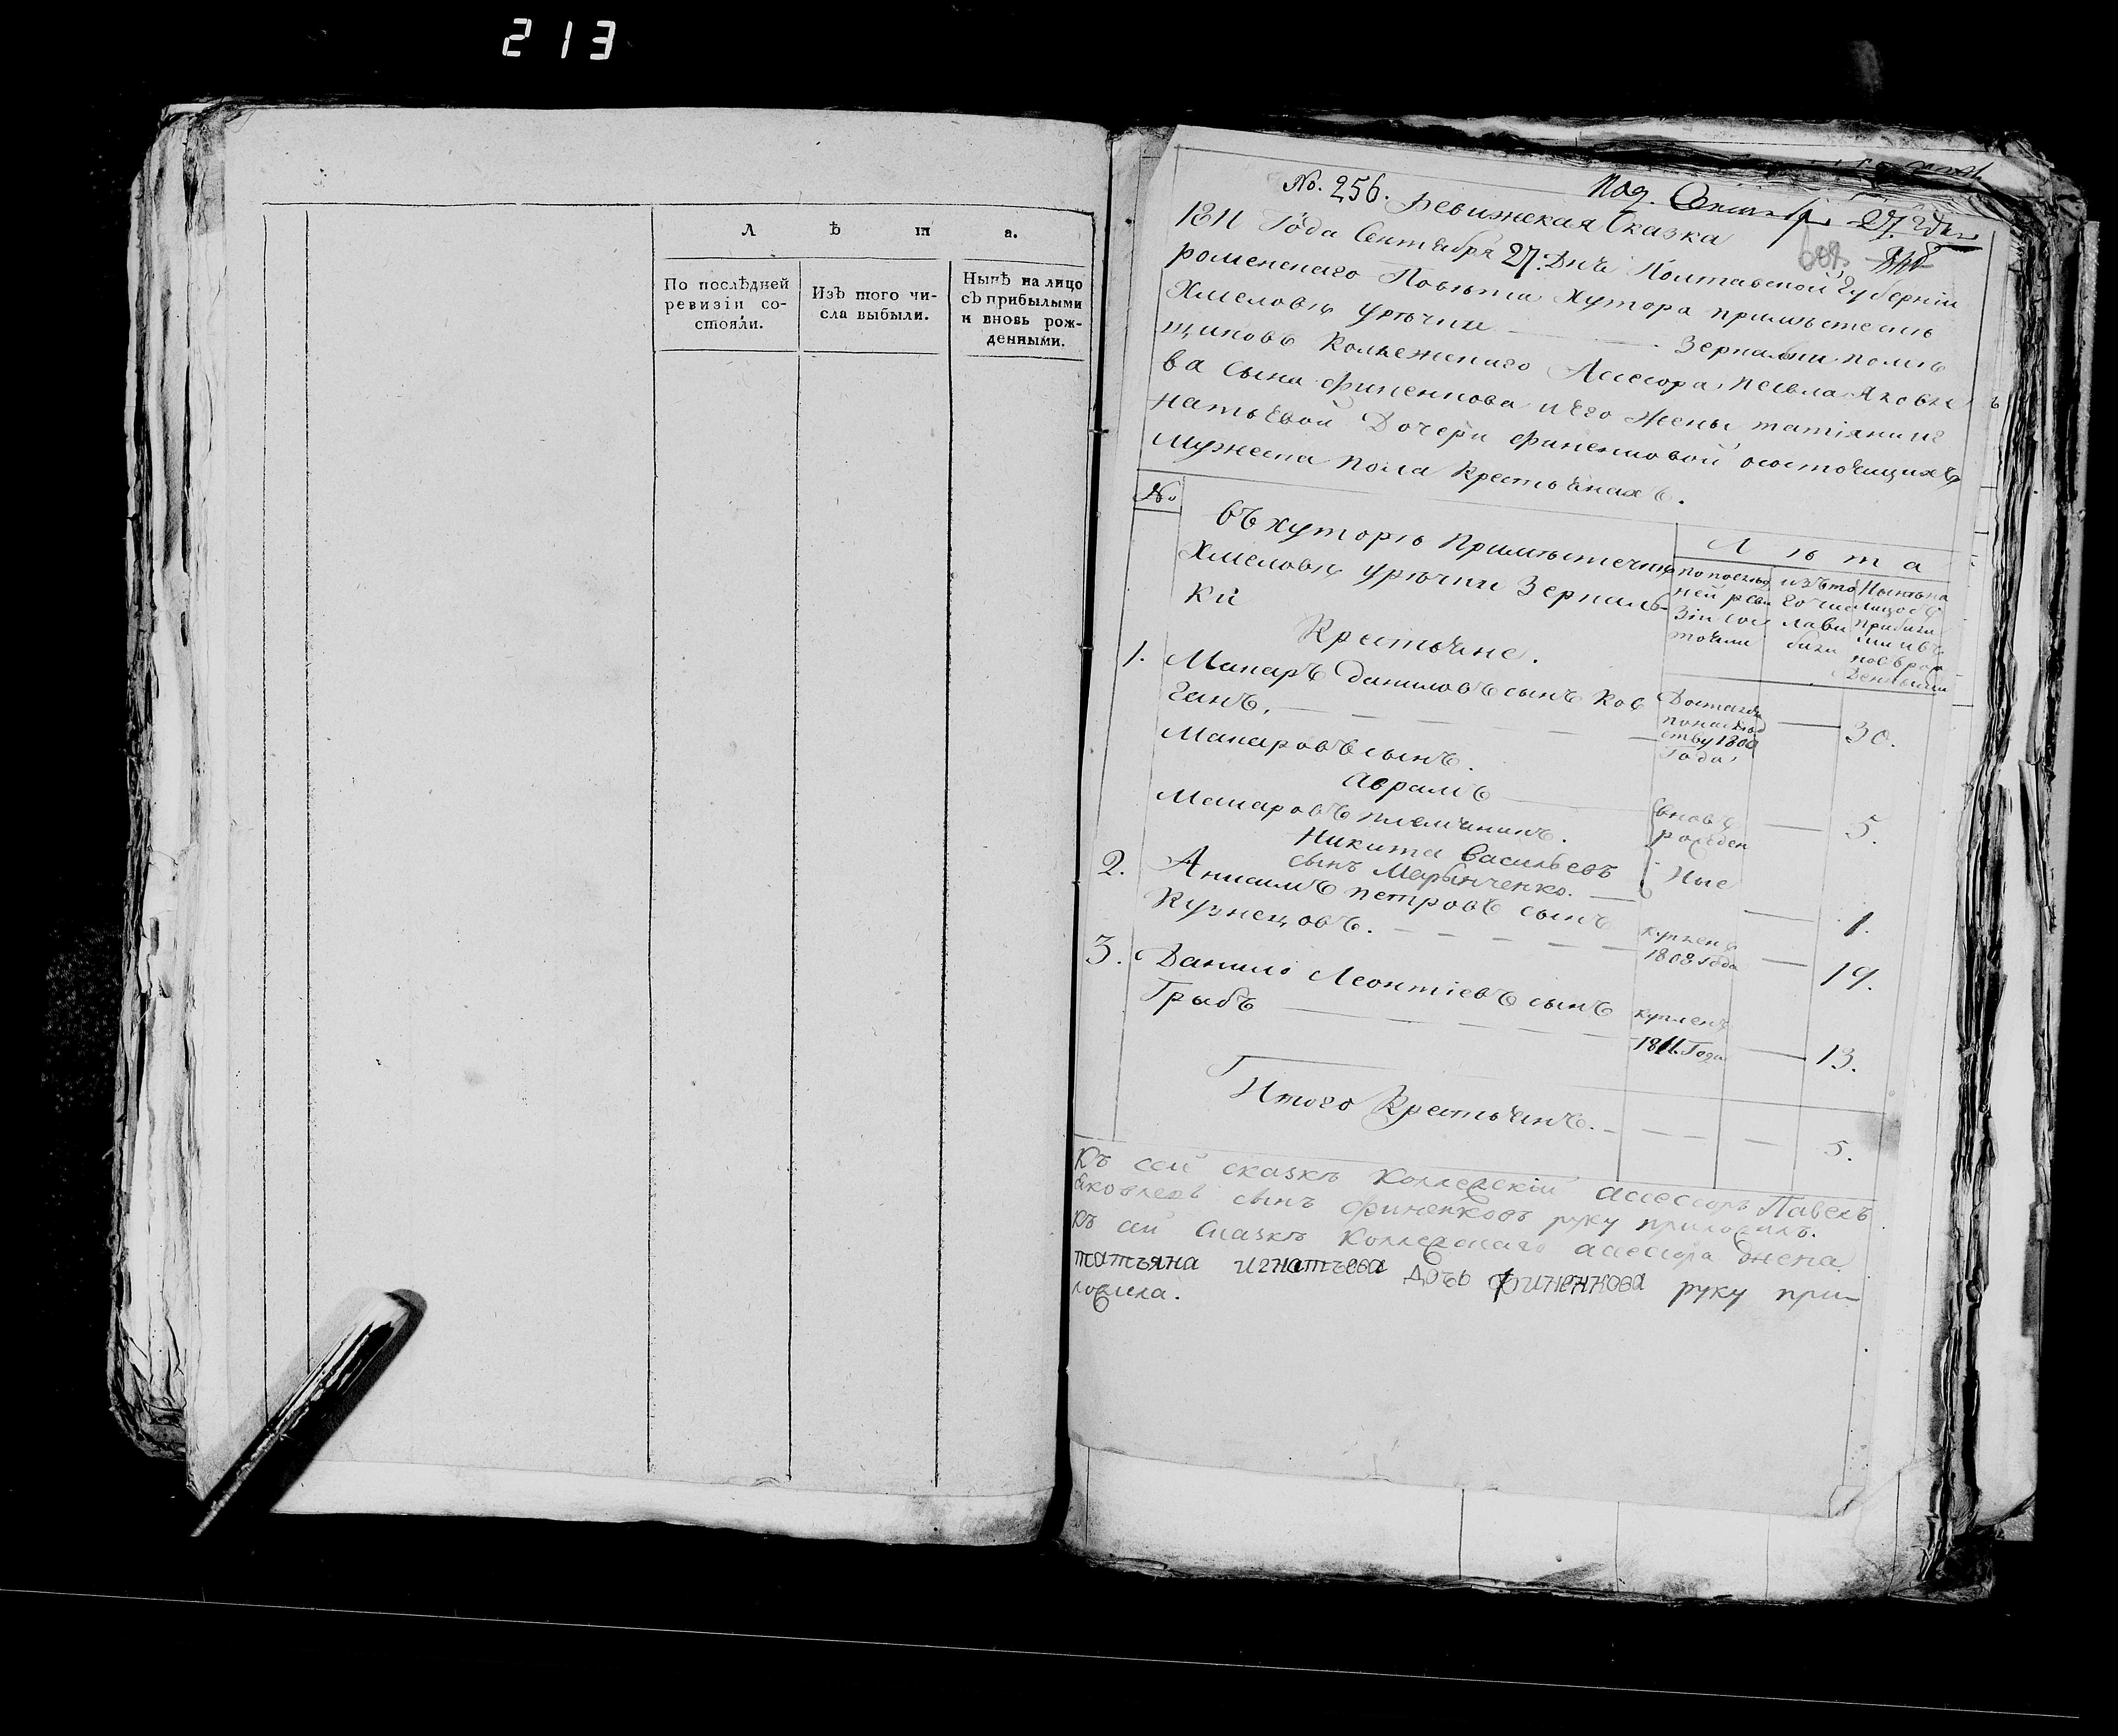 213
Л ѣ т а.
По послѣдней ревизіи со-стояли.
Изъ того чи-сла выбыли.
Нынѣ на лицо съ прибылыми и вновь рож-денными.
No. 256. Ревижская Сказка
Под. 27
609
1811 Года Сентября 27. Дня Полтавской Губерніи
роменскаго Повѣта Хутора примѣстечкѣ
Хмеловѣ урѣчки Зеркальки помѣ
щиковъ Коллежскаго Асессора Павла Яковле
ва сына финенкова и его Жены татіяни иг
натьевой Дочери финенковой о состоящихъ
мужеска пола Крестьянахъ.
№
въ хуторѣ Примѣстечкѣ
Хмеловѣ урѣчки Зеркаль-
ки
Л ѣ т а
по послѣд
ней реви
зіи сос
тояли
изъ то
го чис
ла ви
били
Нынѣ на
лицо съ
прибили
ми ивъ
новь рож
Денными
Крестьяне.
1. Макаръ даниловъ сынъ Ков
ганъ. Достался
по наслѣд
ству 1800
Года 30.
Макаровъ сынъ.
Аврамъ вновь
рожден 5.
Макаровъ племянникъ.
Никита Васильевъ
сынъ Марынченко. ные 1.
2. Анисимъ петровъ сынъ
Кузнецовъ. купленъ
1808 года 19.
3. Данило Леонтіевъ сынъ
Грыбъ купленъ
1811. Года 13.
Итого Крестьянъ. 5.
Къ сей сказкѣ Коллежскій ассессоръ Павелъ
Яковлевъ сынъ финенковъ руку приложилъ.
Къ сей сказкѣ Коллежскаго асессора жена
татьяна игнатьева дочь финенкова руку при-
ложила.